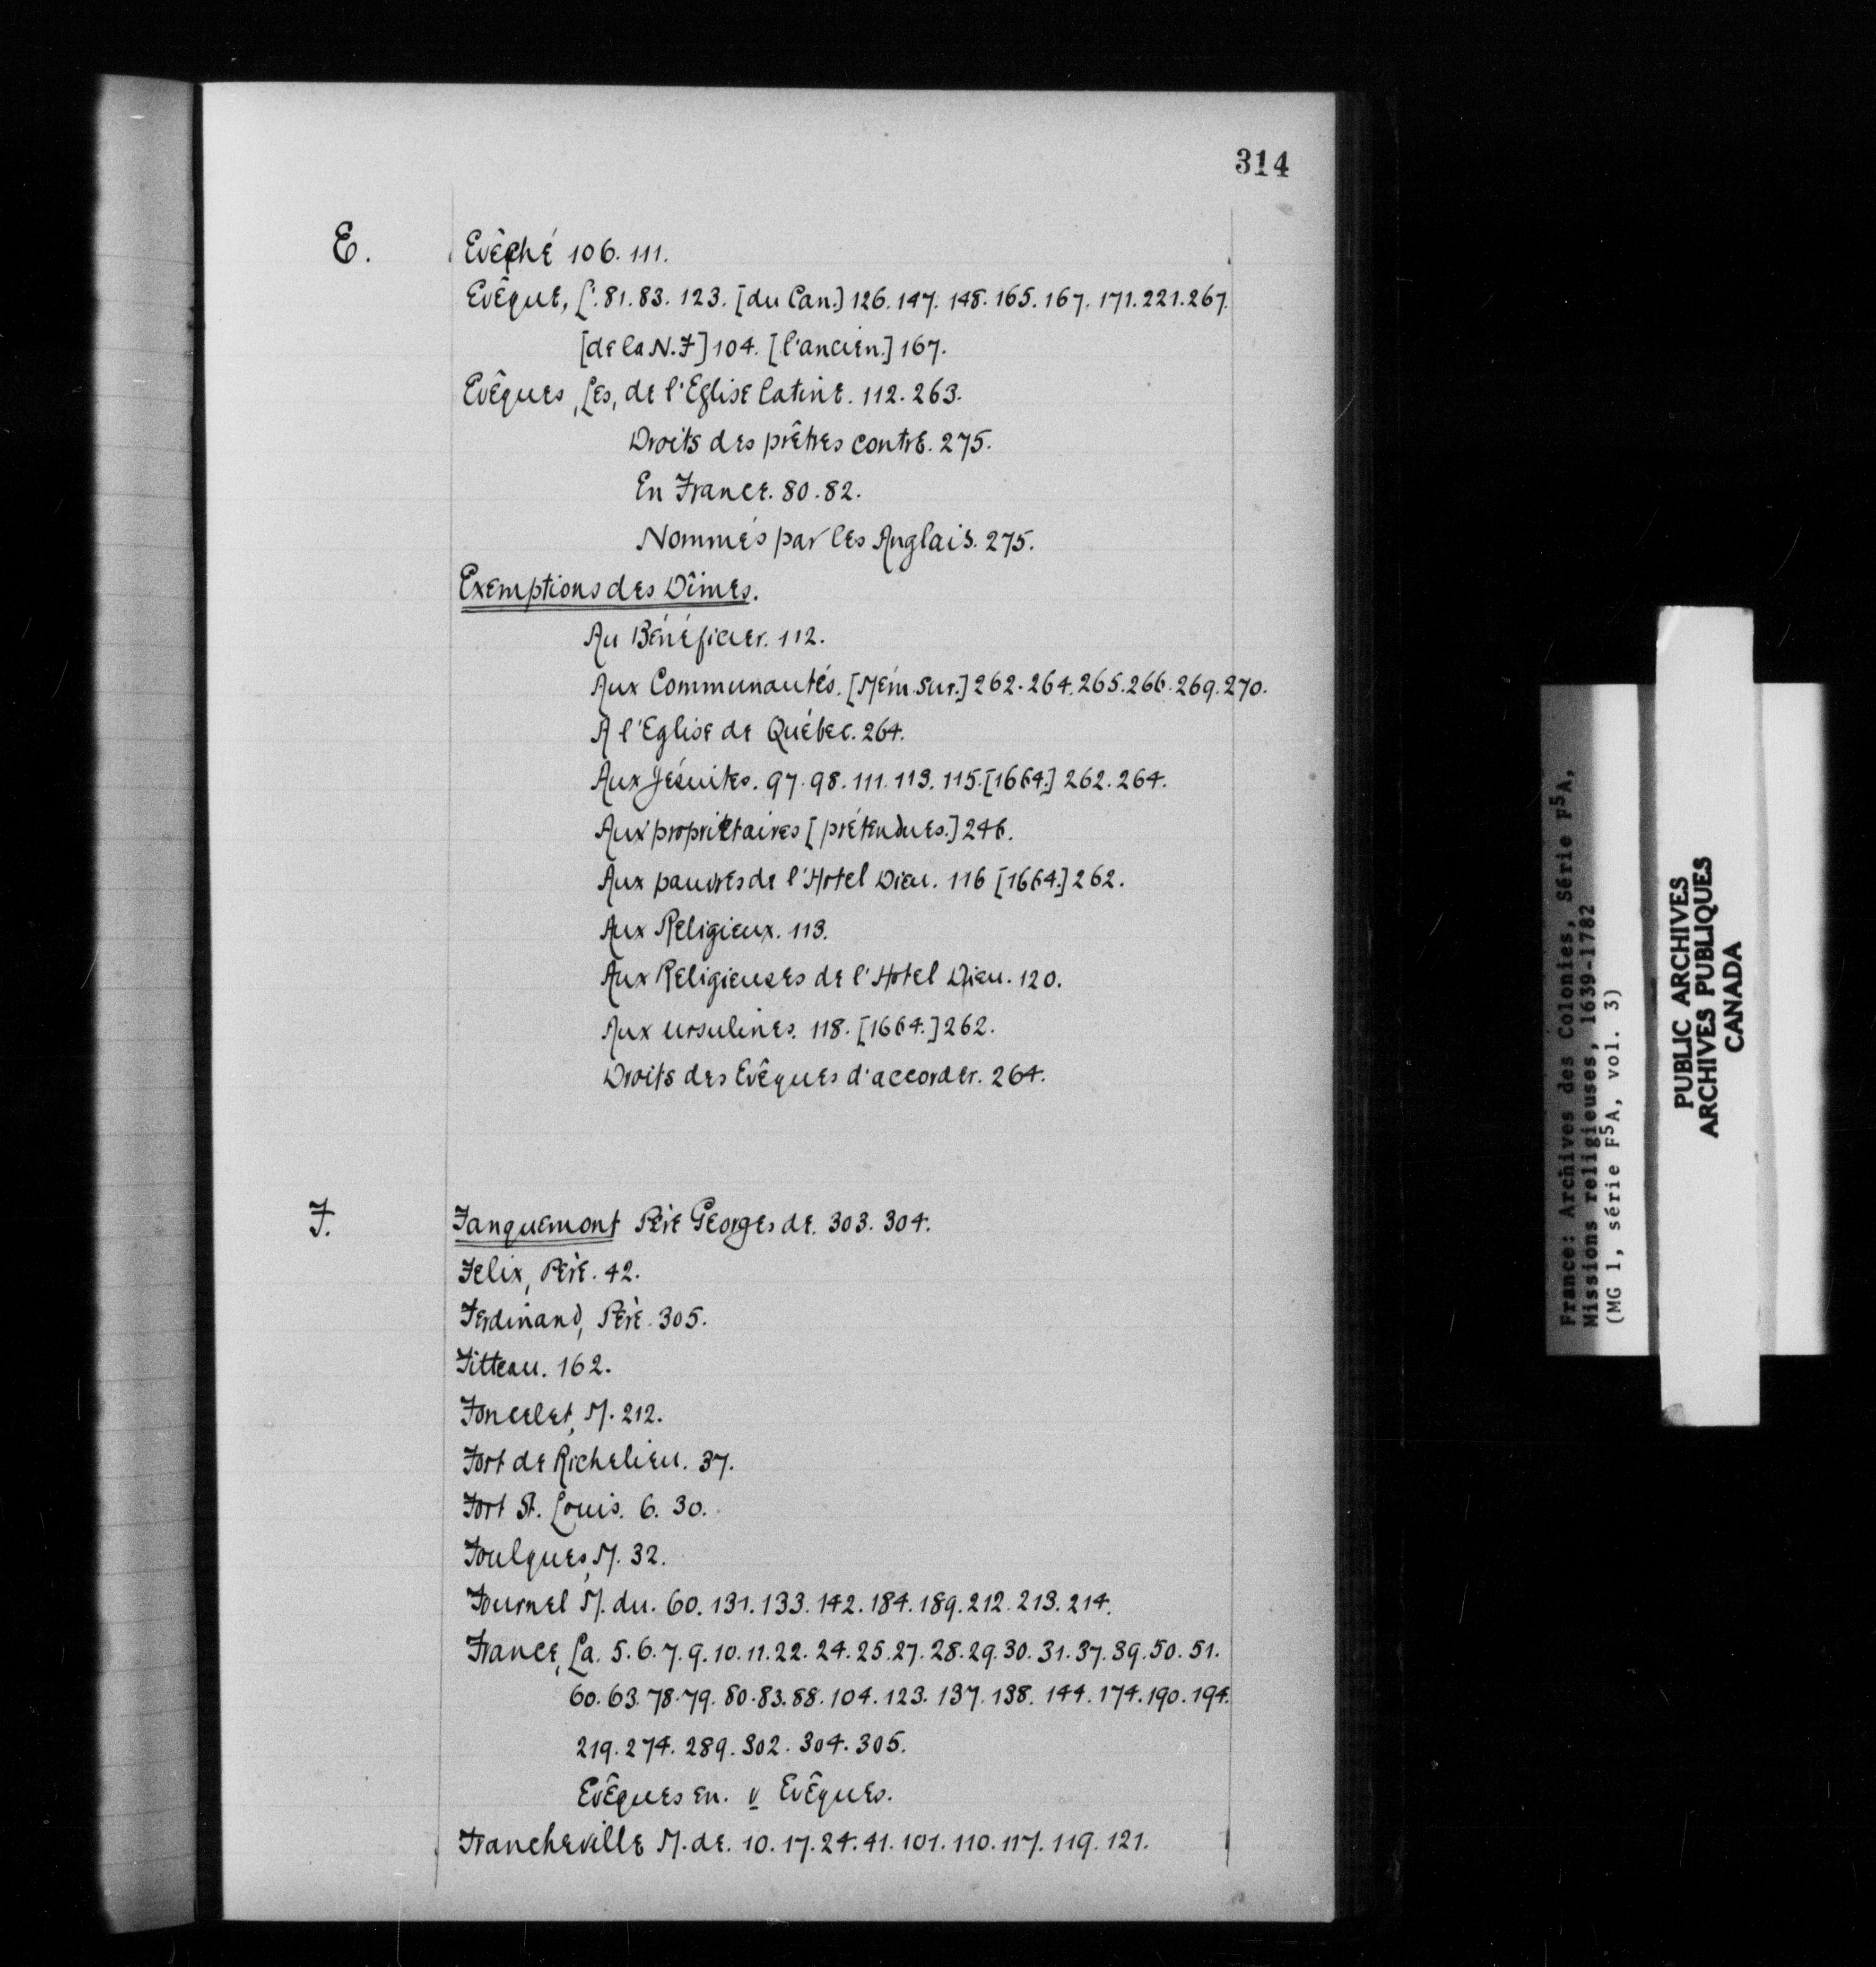 314
E. Evêché 106. 111.
Evêque, L'. 81. 83. 123. [du Can.] 126. 147. 148. 165. 167. 171. 221. 267.
[de la N. F] 104. [l'ancien.] 167.
Evêques, Les, de l'Eglise latine. 112. 263.
Droits des prêtres contre. 275.
En France. 80. 82.
Nommés par les Anglais. 275.
Exemptions des Dîmes.
Au Bénéficier. 112.
Aux Communautés. [Mém. sur.] 262. 264. 265. 266. 269. 270.
A l'Eglise de Québec. 264.
Aux Jésuites. 97. 98. 111. 113. 115. [1664.] 262. 264.
Aux propriétaires [prétendues.] 246.
Aux pauvres de l'Hotel Dieu. 116 [1664.] 262.
Aux Religieux. 113.
Aux Religieuses de l'Hotel Dieu. 120.
Aux Ursulines. 118. [1664.] 262.
Droits des Evêques d'accorder. 264.
F. Fanquemont Père Georges de. 303. 304.
Felix, Père. 42.
Ferdinand, Père. 305.
Fitteau. 162.
Foncelet, M. 212.
Fort de Richelieu. 37.
Fort St. Louis. 6. 30.
Foulques, M. 32.
Fournel M. du. 60. 131. 133. 142. 184. 189. 212. 213. 214.
France, La. 5. 6. 7. 9. 10. 11. 22. 24. 25. 27. 28. 29. 30. 31. 37. 39. 50. 51.
60. 63. 78. 79. 80. 83. 88. 104. 123. 137. 138. 144. 174. 190. 194.
219. 274. 289. 302. 304. 305.
Evêques en. v Evêques.
Francheville M. de. 10. 17. 24. 41. 101. 110. 117. 119. 121.
France: Archives des Colonies, Série F5A,
Missions religieuses, 1639-1782
(MG 1, série F5A, vol. 3)
PUBLIC ARCHIVES
ARCHIVES PUBLIQUES
CANADA